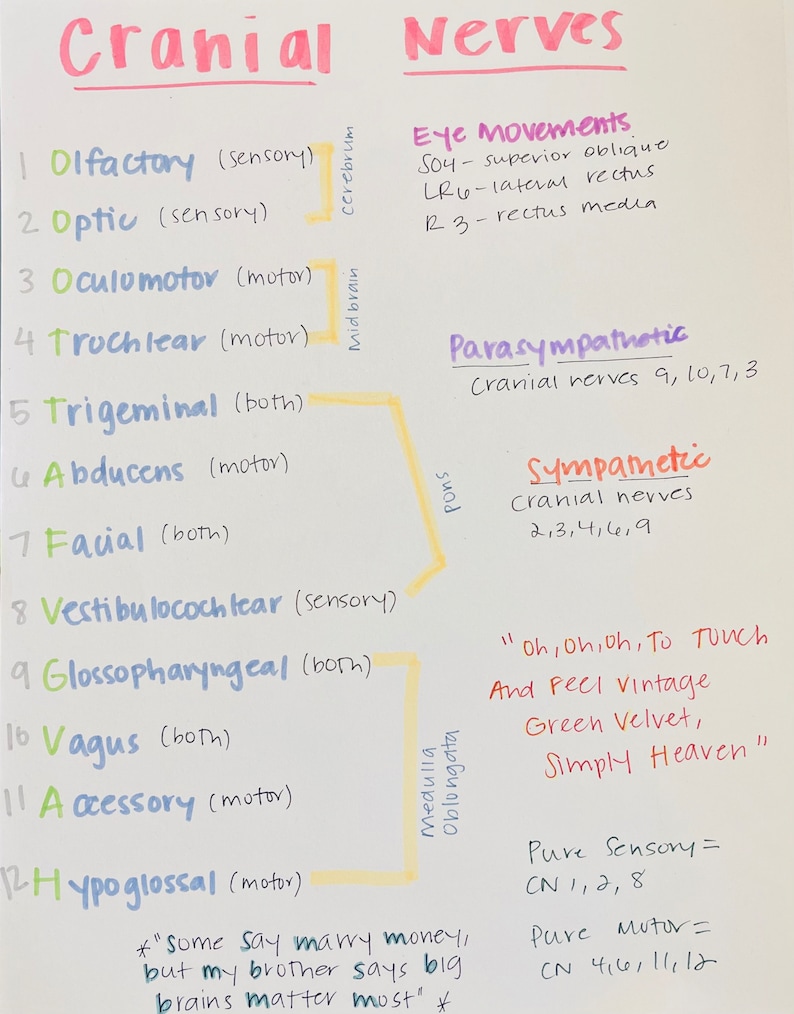 Cranial Nerves
1 Olfactory (sensory)
2 Optic (sensory)
cerebrum
3 Oculomotor (motor)
4 Trochlear (motor)
Midbrain
5 Trigeminal (both)
6 Abducens (motor)
7 Facial (both)
8 Vestibulocochlear (sensory)
pons
9 Glossopharyngeal (both)
10 Vagus (both)
11 Accessory (motor)
12 Hypoglossal (motor)
Medulla
Oblongata
*"Some say marry money,
but my brother says big
brains matter most" *
Eye Movements
SO4 - superior oblique
LR6 - lateral rectus
R 3 - rectus media
Parasympathetic
Cranial nerves 9, 10, 7, 3
Sympathetic
Cranial nerves
2, 3, 4, 6, 9
"Oh, Oh, Oh, To Touch
And Feel Vintage
Green Velvet,
Simply Heaven"
Pure Sensory =
CN 1, 2, 8
Pure Motor =
CN 4, 6, 11, 12